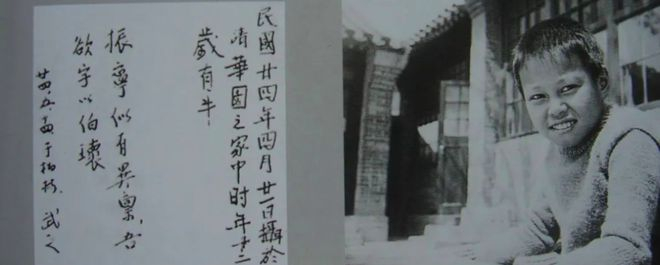 民國廿四年四月廿一日攝於
清華園之家中时年十二
歲有半
振寧似有異稟,吾
欲字以伯瓌
廿四 于柏林. 武之